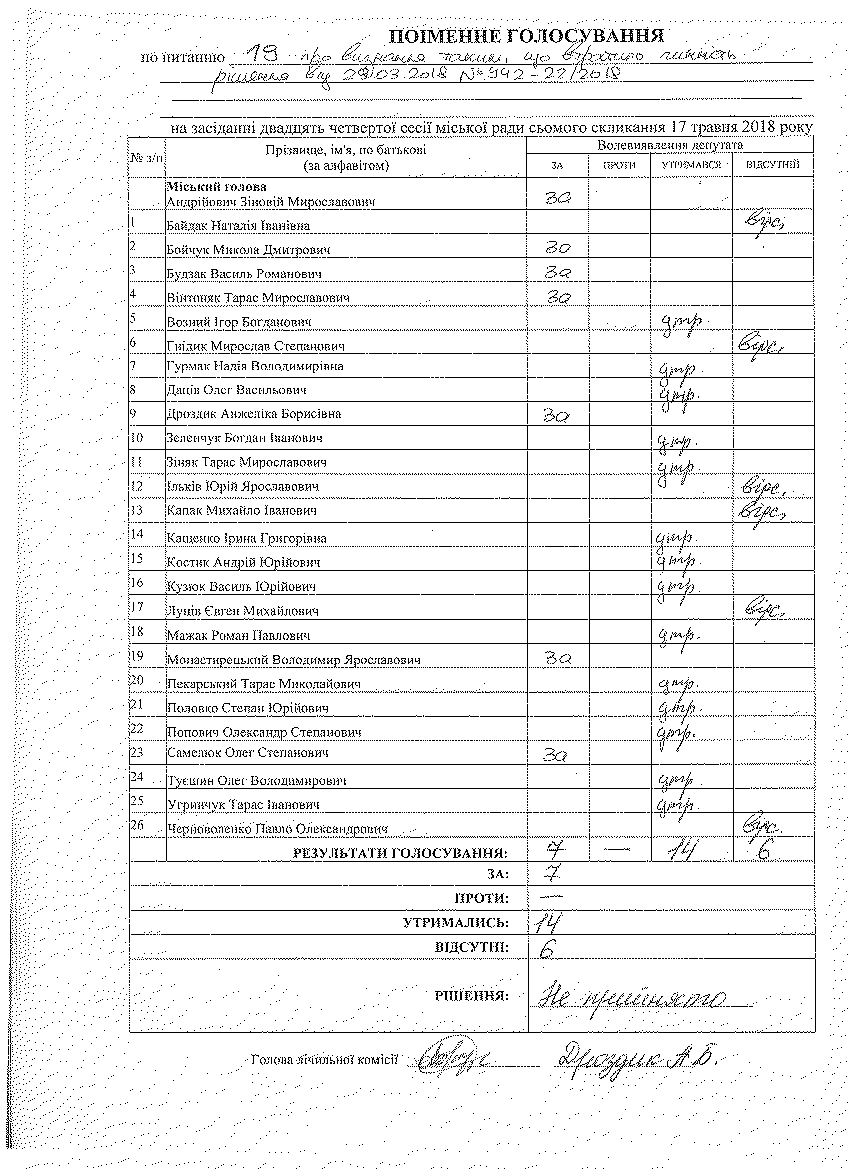 ПОІМЕННЕ ГОЛОСУВАННЯ
по питанню 19 про визнання таким, що втратило чинність
рішення від 29.03.2018 № 942-22/2018
на засіданні двадцять четвертої сесії міської ради сьомого скликання 17 травня 2018 року
№ з/п Прізвище, ім'я, по батькові (за алфавітом) Волевиявлення депутата
ЗА ПРОТИ УТРИМАВСЯ ВІДСУТНІЙ
Міський голова
Андрійович Зіновій Мирославович За
1 Байдак Наталія Іванівна відс.
2 Бойчук Микола Дмитрович За
3 Будзак Василь Романович За
4 Вінтоняк Тарас Мирославович За
5 Возний Ігор Богданович утр.
6 Гнідик Мирослав Степанович відс.
7 Гурмак Надія Володимирівна утр.
8 Даців Олег Васильович утр.
9 Дроздик Анжеліка Борисівна За
10 Зеленчук Богдан Іванович утр.
11 Зіняк Тарас Мирославович утр.
12 Ільків Юрій Ярославович відс.
13 Капак Михайло Іванович відс.
14 Кащенко Ірина Григорівна утр.
15 Костик Андрій Юрійович утр.
16 Кузюк Василь Юрійович утр.
17 Лунів Євген Михайлович відс.
18 Мажак Роман Павлович утр.
19 Монастирецький Володимир Ярославович За
20 Пекарський Тарас Миколайович утр.
21 Половко Степан Юрійович утр.
22 Попович Олександр Степанович утр.
23 Самелюк Олег Степанович За
24 Туєшин Олег Володимирович утр.
25 Угринчук Тарас Іванович утр.
26 Черноволенко Павло Олександрович відс.
РЕЗУЛЬТАТИ ГОЛОСУВАННЯ: 7 — 14 6
ЗА: 7
ПРОТИ: —
УТРИМАЛИСЬ: 14
ВІДСУТНІ: 6
РІШЕННЯ: Не прийнято
Голова лічильної комісії Дроздик А.Б.